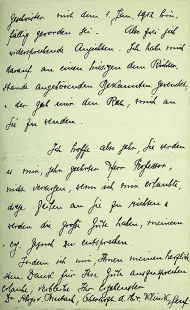 mit dem 1. Jan. 1912 hin-
fällig geworden sei. Also zwei sich
widersprechende Angaben. Ich habe mich
darauf an einen hiesigen dem Richter-
stande angehörenden Bekannten gewendet,
der gab mir den Rat, mich an
Sie zu wenden.
Ich hoffe also sehr, Sie werden
es mir, sehr geehrter Herr Professor,
nicht verargen, wenn ich mir erlaubte,
diese Zeilen an Sie zu richten &
werden die große Güte haben, meinem
Gesuch zu entsprechen.
Indem ich mir, Ihnen meinen herzlich-
sten Dank für Ihre Güte auszusprechen
erlaube, verbleibe Ihr Ergebenster
Dr.